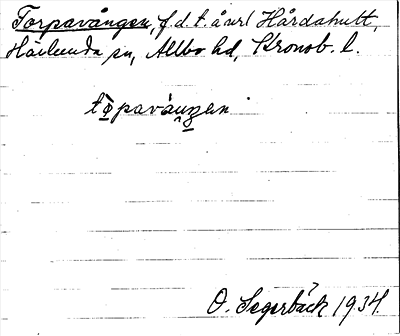 Torpavången, f.d.t. å url Hårdahult,
Härlunda sn, Allbo hd, Kronob. l.
tɵpavåŋgen
O. Segerbäck 1934.